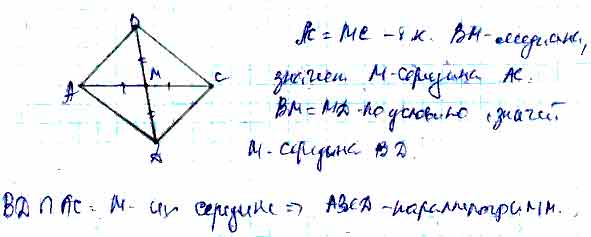 B
AC = MC - т.к. BM - медиана,
A M C
значит M - середина AC.
BM = MD - по условию, значит
D
M - середина BD.
BD ∩ AC = M - их середине => ABCD - параллелограмм.